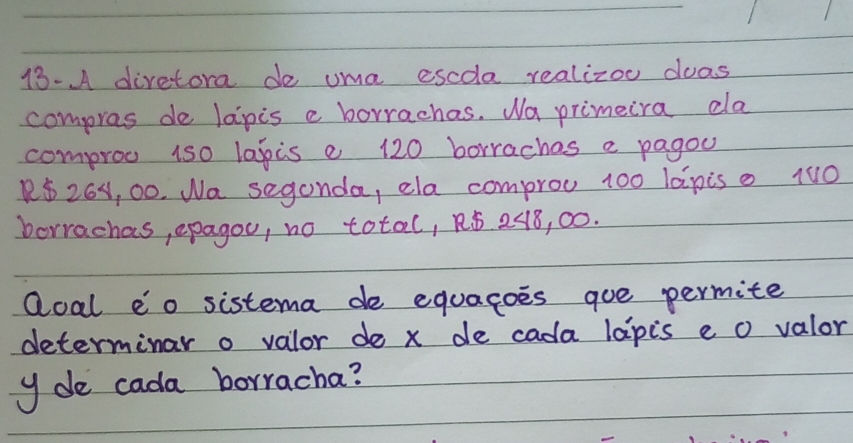 13- A diretora de uma escola realizou duas
compras de lápis e borrachas. Na primeira ela
comprou 150 lápis e 120 borrachas e pagou
R$ 264,00. Na segunda, ela comprou 100 lápis e 140
borrachas, e pagou, no total, R$ 248,00.
Qual é o sistema de equações que permite
determinar o valor de x de cada lápis e o valor
y de cada borracha?